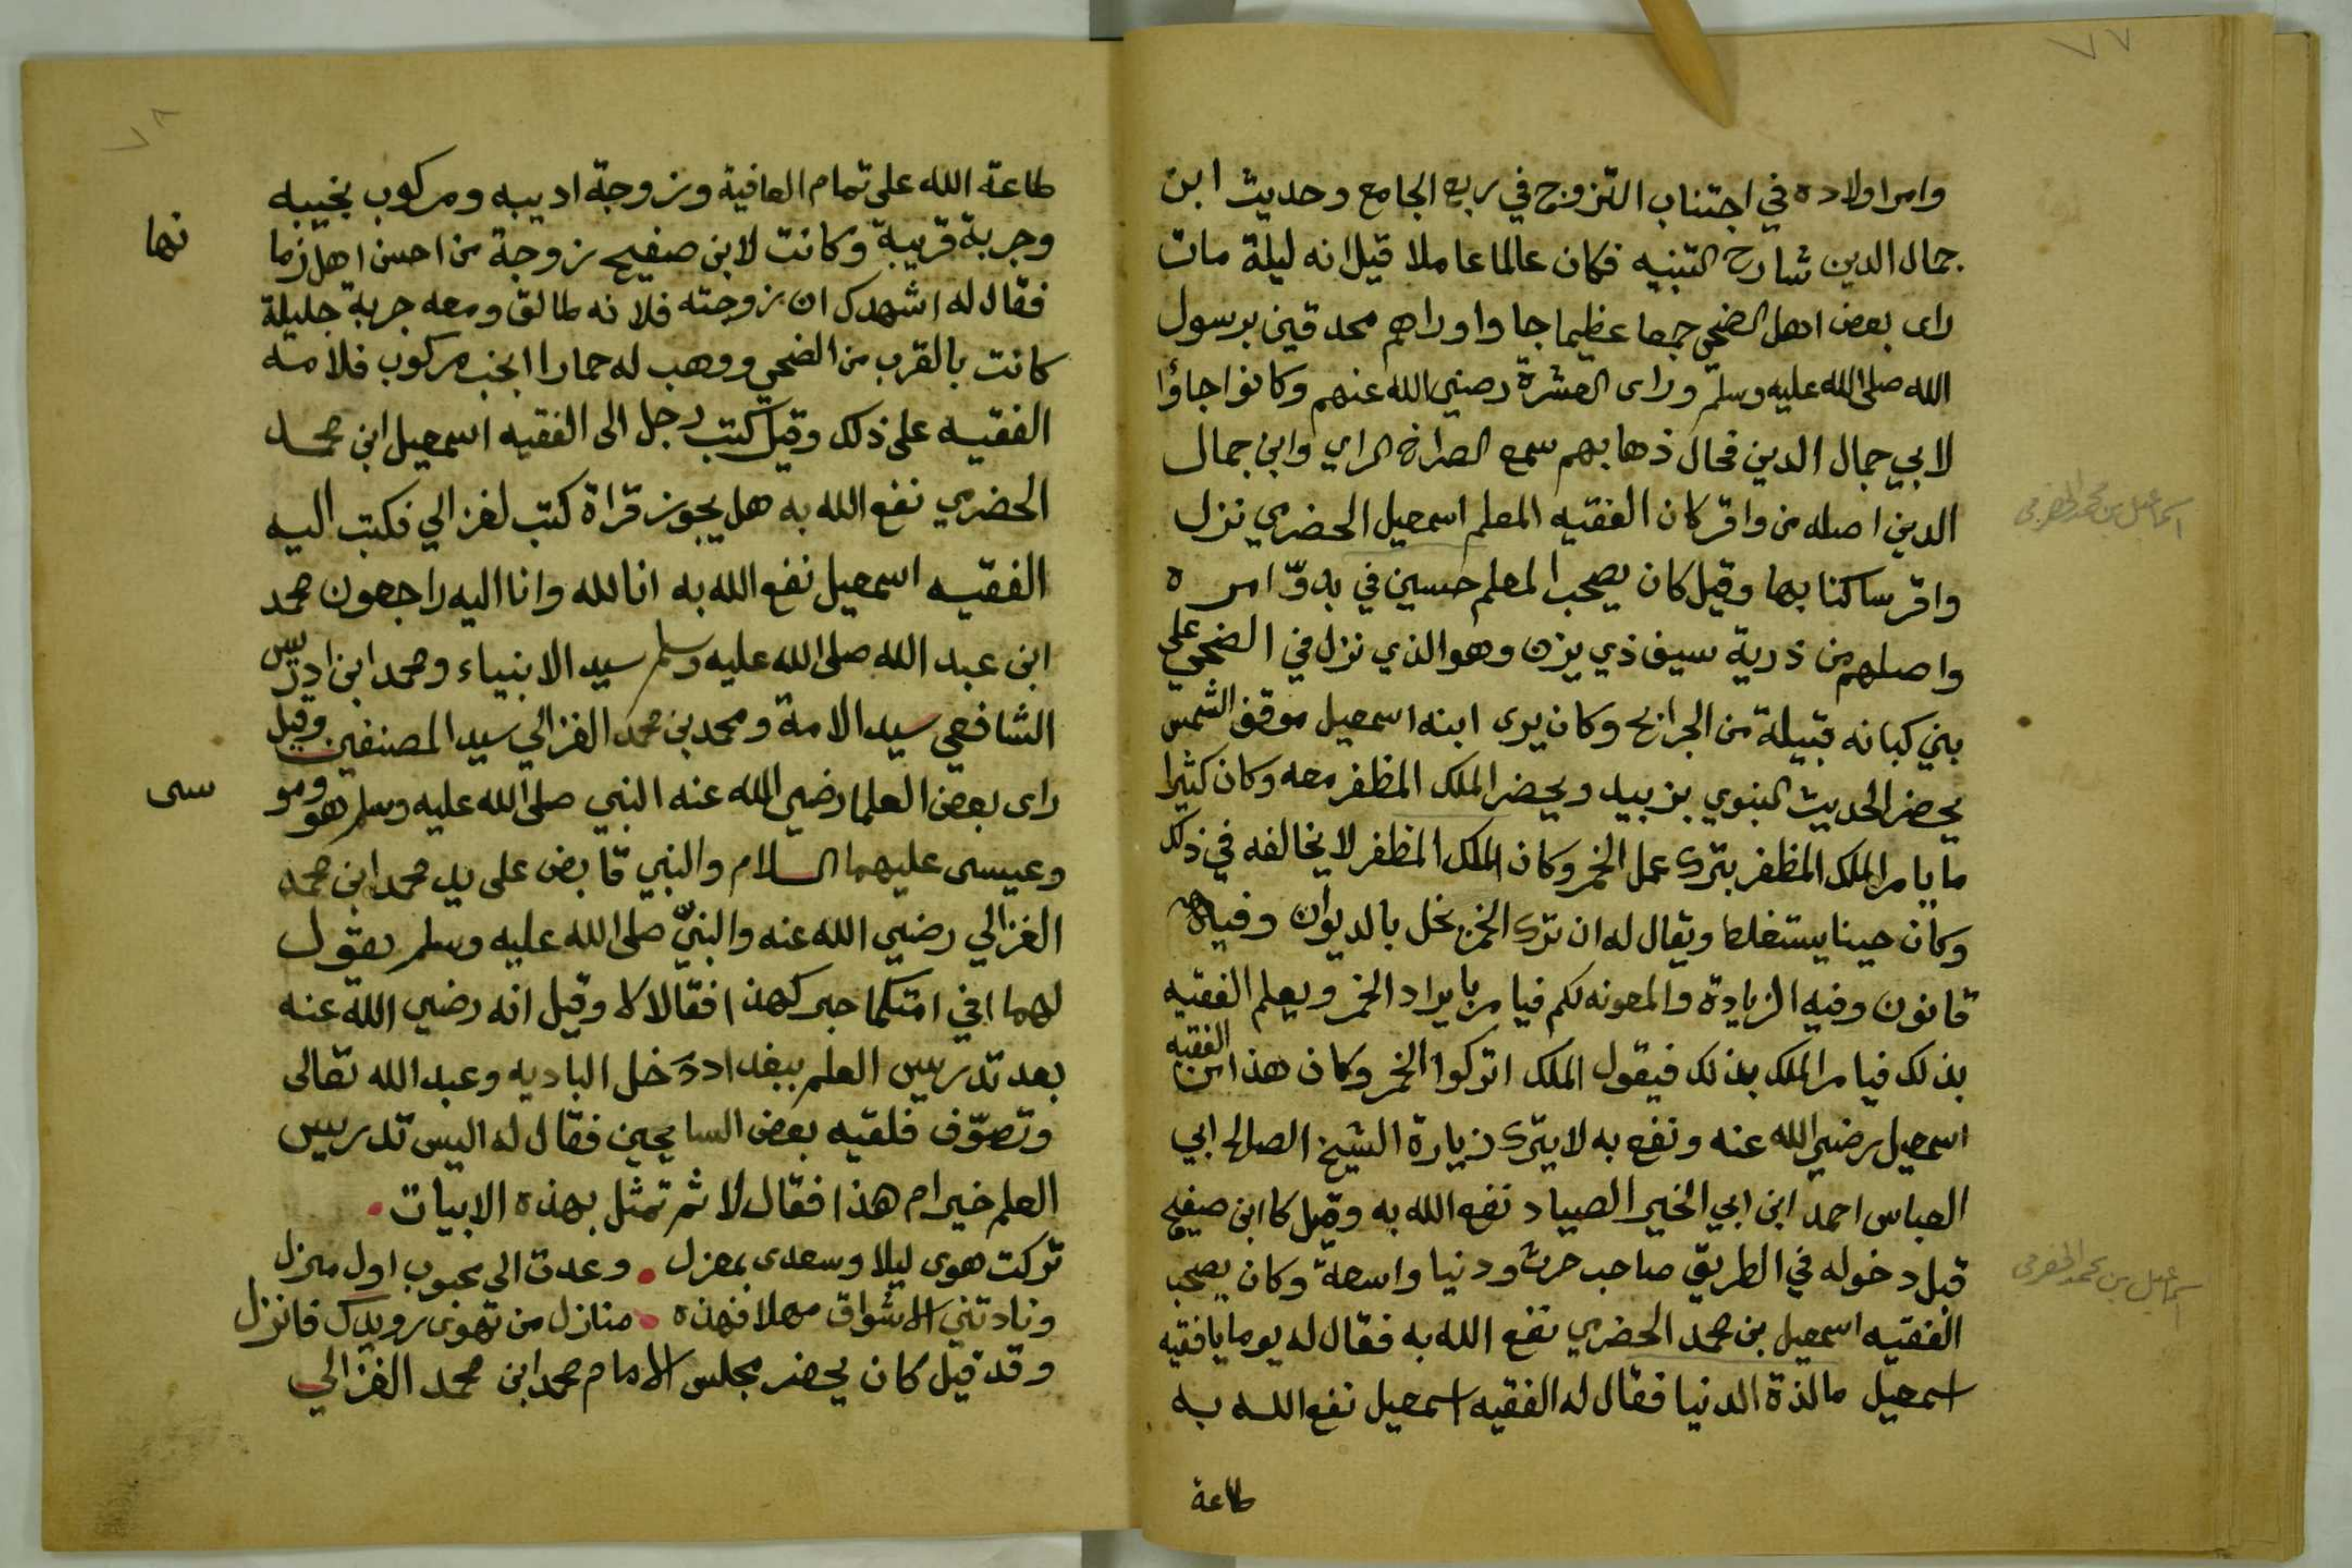 ٧٧
وامر اولاده في اجتناب التزوج في ربع الجامع وحديث ابن
جمال الدين شارح التنبيه فكان عالما عاملا قيل انه ليلة مات
راى بعض اهل الضحي جمعا عظيما جاوا وراهم محدقين برسول
الله صلى الله عليه وسلم وراى العشرة رضي الله عنهم وكانوا جاؤا
لابي جمال الدين فحال ذهابهم سمع الصراخ الراي وابن جمال
الدين اصله من واقر كان الفقيه المعلم اسمعيل الحضرمي نزل
واقر ساكنا بها وقيل كان يصحب المعلم حسين في بدوّ امره
واصلهم من ذرية سيف ذي يزن وهو الذي نزل في الضحي على
بني كبانه قبيلة من الجرابح وكان يرى ابنه اسمعيل موقف الشمس
يحضر الحديث النبوي بزبيد ويحضر الملك المظفر معه وكان كثيرا
ما يامر الملك المظفر بترك عمل الخمر وكان الملك المظفر لا يخالفه في ذلك
وكان حينا يستغلط ويقال له ان ترك الخمر يخل بالديوان وفيه
قانون وفيه الزيادة والمعونه لكم فيامر بايراد الخمر ويعلم الفقيه
بذلك فيامر الملك بذلك فيقول الملك اتركوا الخمر وكان هذا ابن الفقيه
اسمعيل رضي الله عنه ونفع به لا يترك زيارة الشيخ الصالح ابي
العباس احمد ابن ابي الخير الصياد نفع الله به وقيل كا ابن صفيح
قبل دخوله في الطريق صاحب حرث ودنيا واسعة وكان يصحب
الفقيه اسمعيل بن محمد الحضرمي نفع الله به فقال له يوما يا فقيه
اسمعيل ما لذة الدنيا فقال له الفقيه اسمعيل نفع الله به
طاعة
اسماعيل بن محمد الحضرمي
اسماعيل بن محمد الحضرمي
٧٨
طاعة الله على تمام العافية وزوجة اديبه ومركوب نجيبه
وجربة قريبة وكانت لابن صفيح زوجة من احسن اهل زما
نها
فقال له اشهدك ان زوجته فلانه طالق ومعه جربة جليلة
كانت بالقرب من الضحي ووهب له حمارا انجب مركوب فلامه
الفقيه على ذلك وقيل كتب رجل الى الفقيه اسمعيل ابن محمد
الحضرمي نفع الله به هل يجوز قراة كتب لغزالي فكتب اليه
الفقيه اسمعيل نفع الله به انا لله وانا اليه راجعون محمد
ابن عبد الله صلى الله عليه وسلم سيد الانبياء ومحمد ابن ادريس
الشافعي سيد الامة ومحمد بن محمد الغزالي سيد المصنفين وقيل
راى بعض العلما رضي الله عنه النبي صلى الله عليه وسلم هو ومو
سى
وعيسى عليهما السلام والنبي قابض على يد محمد ابن محمد
الغزالي رضي الله عنه والنبيّ صلى الله عليه وسلم يقول
لهما افي امتكما حبر كهذا فقالا لا وقيل انه رضي الله عنه
بعد تدريس العلم ببغداد دخل الباديه وعبد الله تعالى
وتصوّف فلقيه بعض السايحين فقال له اليس تدريس
العلم خير ام هذا فقال لا ثم تمثل بهذه الابيات .
تركت هوى ليلا وسعدى بمعزل . وعدت الى محبوب اول منزل
ونادتني الاشواق مهلا فهذه . منازل من تهوى رويدك فانزل
وقد قيل كان يحضر مجلس الامام محمد ابن محمد الغزالي